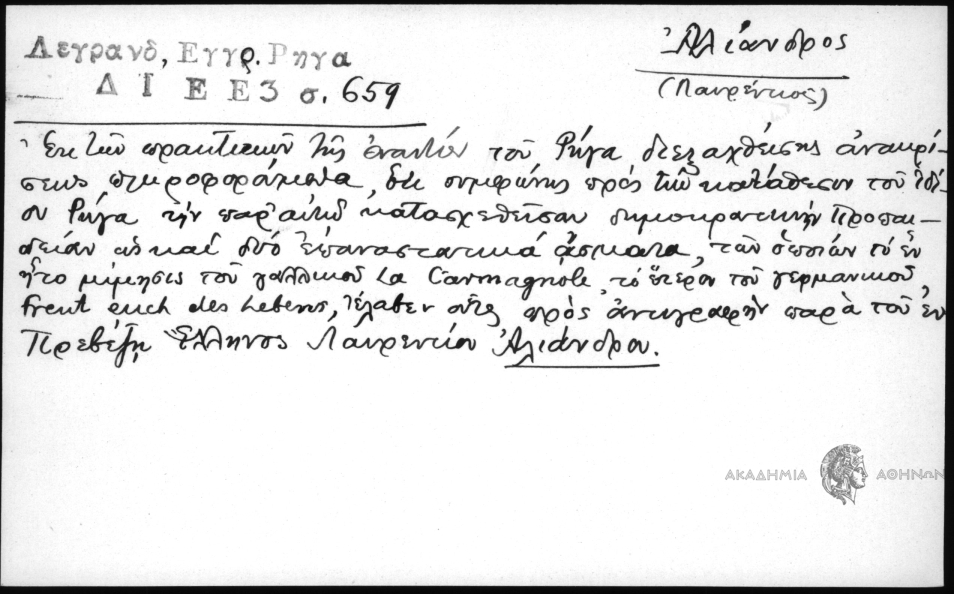 Λεγρανδ, Εγγρ. Ρηγα
Δ Ι Ε Ε 3 σ. 659
Ἀλιάνδρος
(Λαυρέντιος)
Ἐκ τῶν πρακτικῶν τῆς ἐναντίον τοῦ Ρήγα διεξαχθείσης ἀνακρί-
σεως πληροφορούμεθα, ὅτι συμφώνως πρὸς τὴν κατάθεσιν τοῦ ἰδί-
ου Ρήγα τὴν παρ' αὐτοῦ κατασχεθεῖσαν δημοκρατικὴν Προπαι-
δείαν ὡς καὶ δύο ἐπαναστατικά ᾄσματα, τῶν ὁποίων τὸ ἓν
ἦτο μίμησις τοῦ γαλλικοῦ La Carmagnole, τὸ ἕτερον τοῦ γερμανικοῦ
freut euch des Lebens, ἔλαβεν οὗτος πρὸς ἀντιγραφὴν παρὰ τοῦ ἐν
Πρεβέζῃ Ἕλληνος Λαυρεντίου Ἀλιάνδρου.
ΑΚΑΔΗΜΙΑ ΑΘΗΝΩΝ